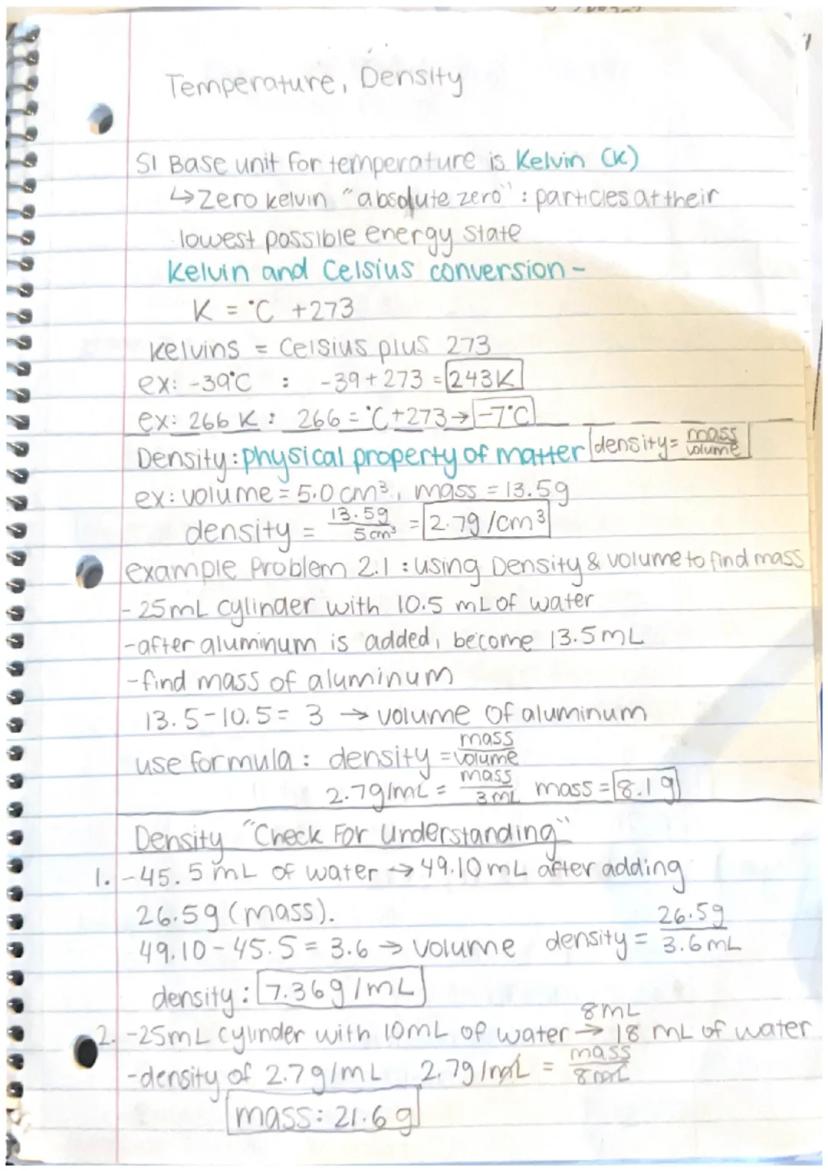 Temperature, Density
SI Base unit for temperature is Kelvin (K)
↳ Zero kelvin "absolute zero" : particles at their
lowest possible energy state
Kelvin and Celsius conversion -
K = °C + 273
Kelvins = Celsius plus 273
ex: -39°C : -39 + 273 = 243K
ex: 266 K : 266 = °C + 273 → -7°C
Density: physical property of matter density = mass/volume
ex: volume = 5.0 cm³, mass = 13.5g
density = 13.5g/5cm³ = 2.7g/cm³
example Problem 2.1 : using Density & volume to find mass
- 25mL cylinder with 10.5 mL of water
- after aluminum is added, become 13.5mL
- find mass of aluminum
13.5 - 10.5 = 3 → volume of aluminum
use formula : density = mass/volume
2.7g/mL = mass/3mL mass = 8.1g
Density "Check For Understanding"
1. - 45.5 mL of water → 49.10 mL after adding
26.5g (mass).
49.10 - 45.5 = 3.6 → volume density = 26.5g/3.6mL
density: 7.36g/mL
8mL
2. - 25mL cylinder with 10mL of water → 18 mL of water
- density of 2.7g/mL 2.7g/mL = mass/8mL
mass: 21.6g